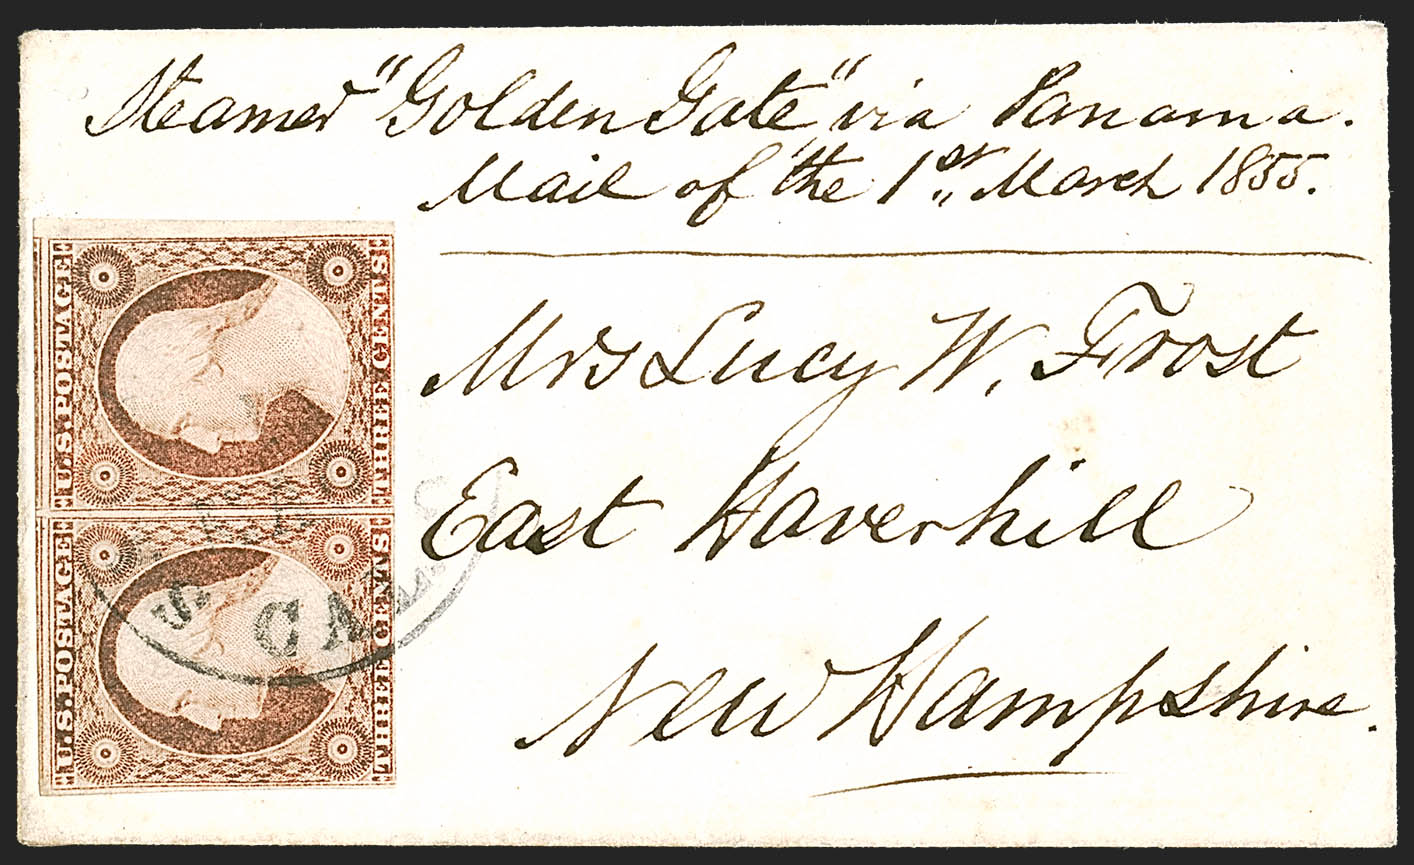 Steamer "Golden Gate" via Panama.
Mail of the 1st, March 1855.
Mrs Lucy W. Frost
East Haverhill
New Hampshire.
U.S. POSTAGE
THREE CENTS
U.S. POSTAGE
THREE CENTS